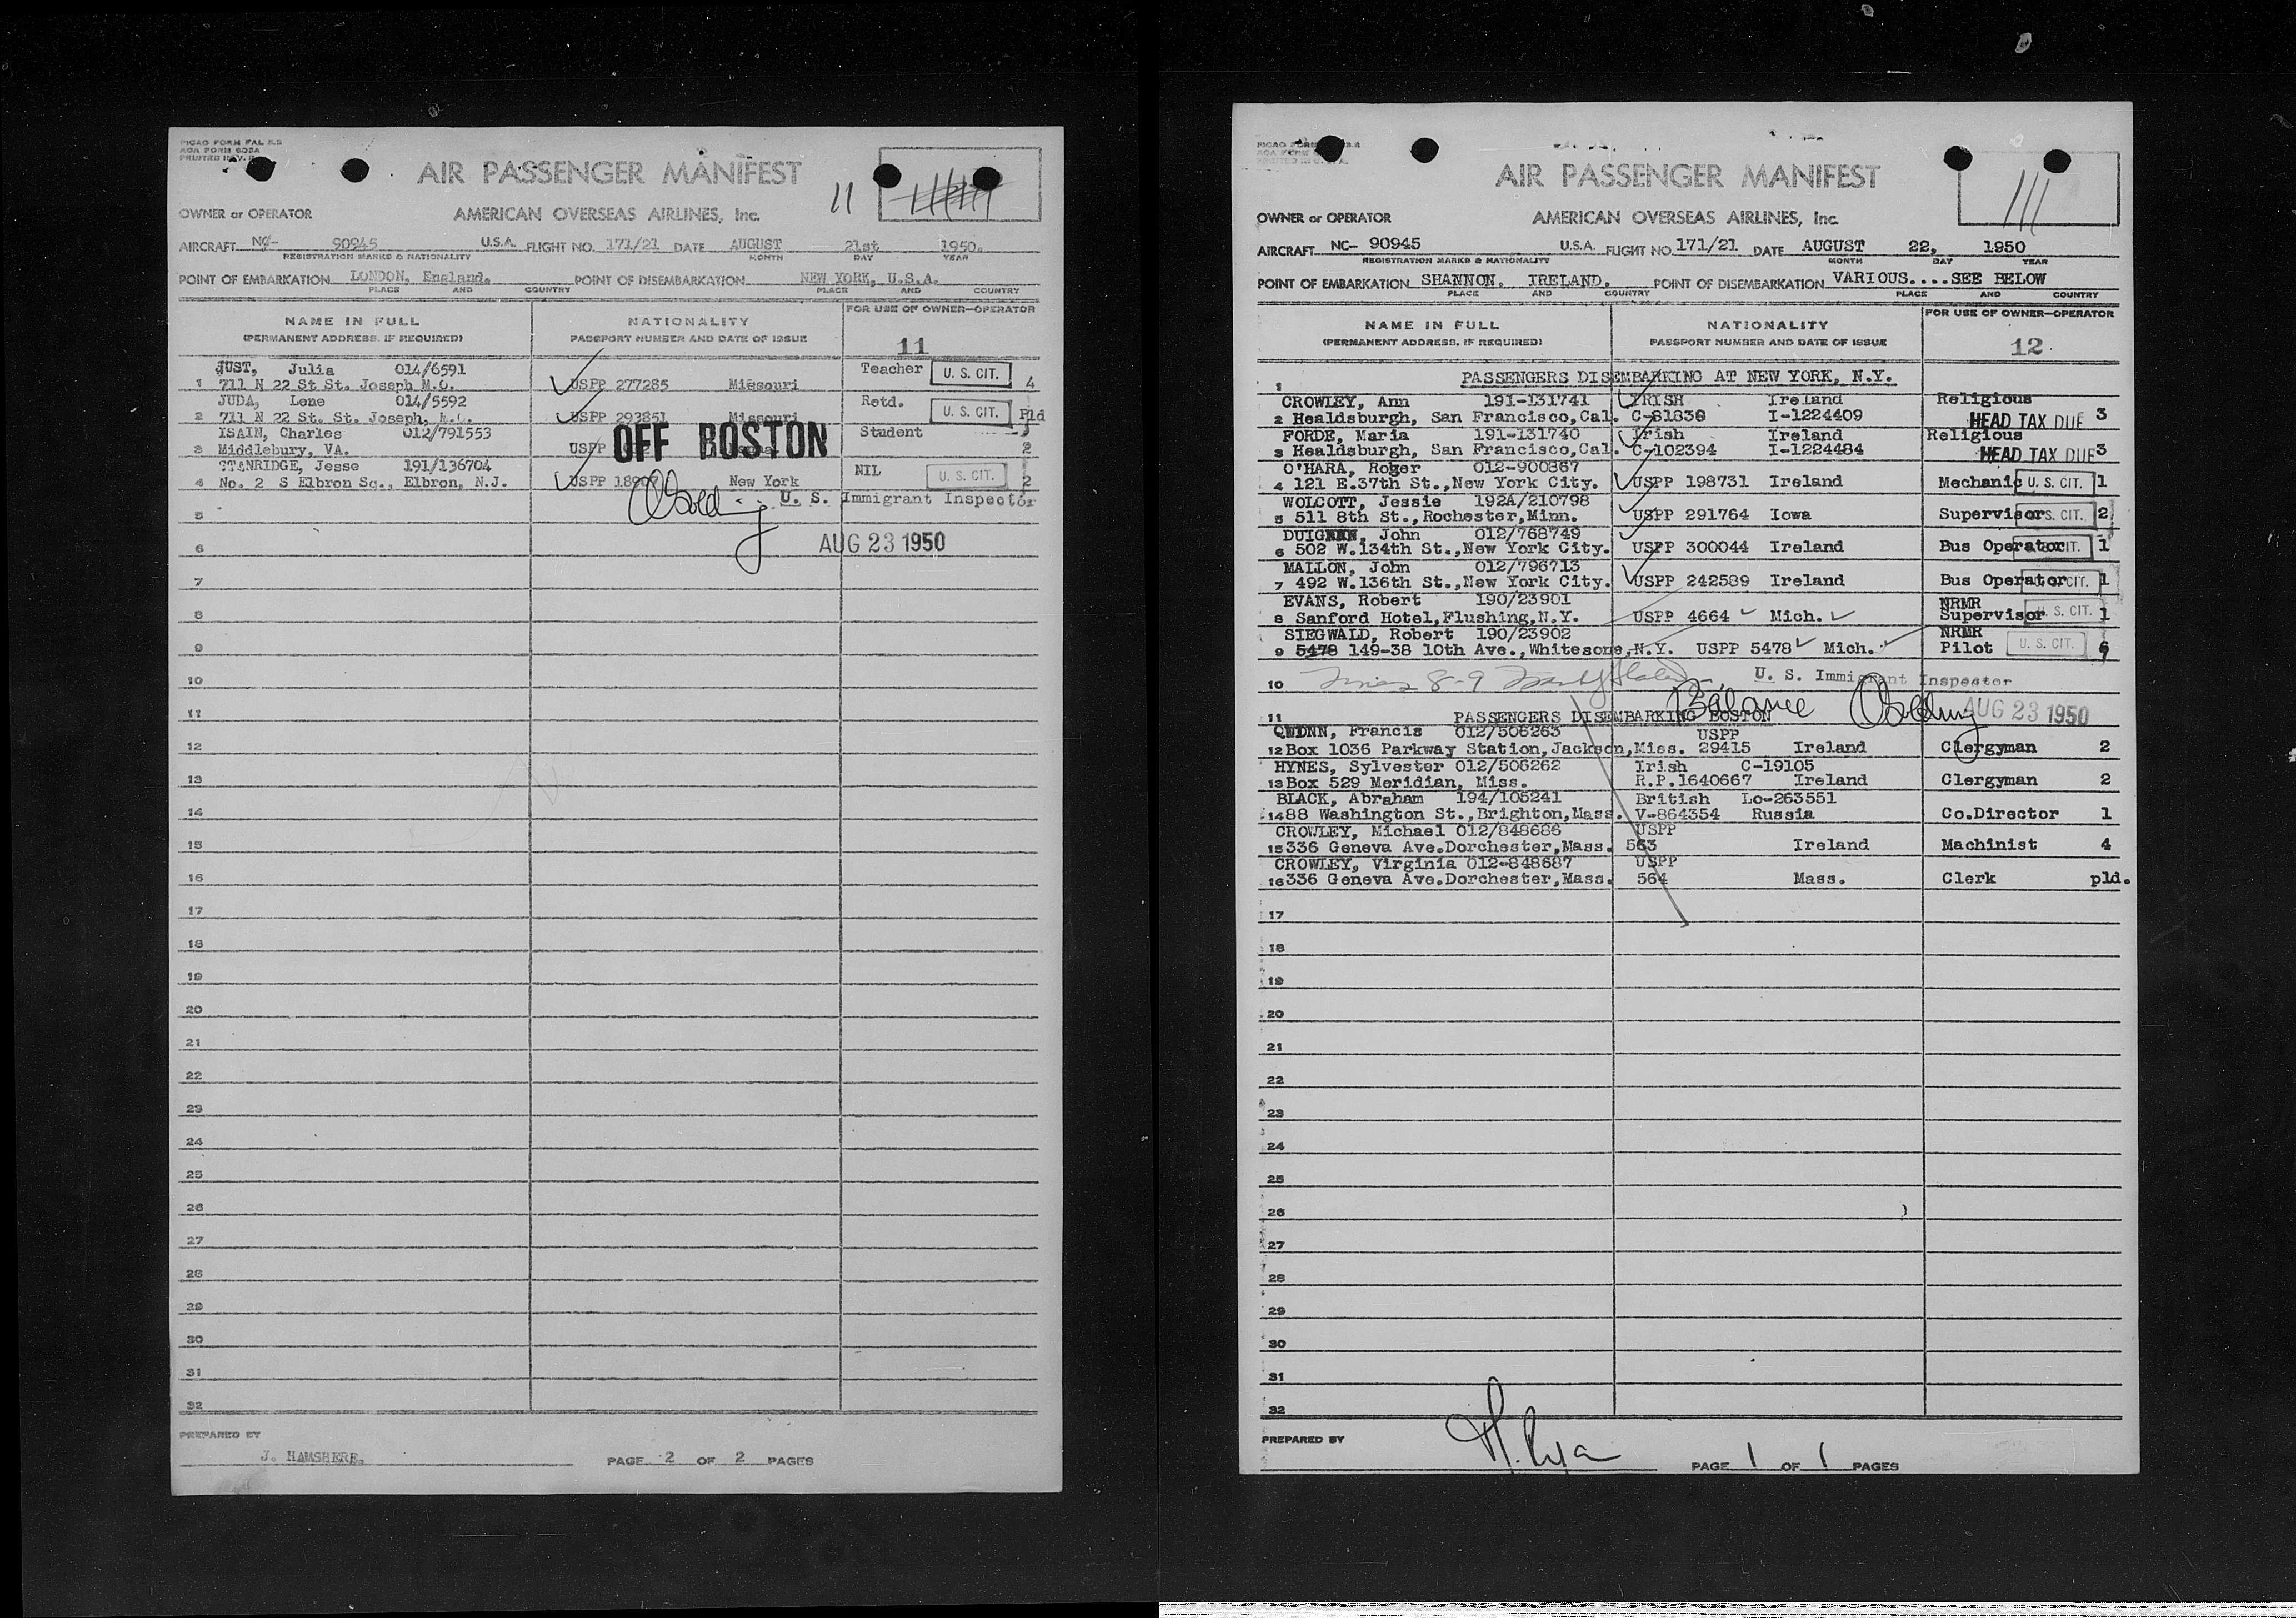 PICAO FORM FAL
AOA FORM
PRINTED IN
AIR PASSENGER MANIFEST
11
OWNER or OPERATOR AMERICAN OVERSEAS AIRLINES, Inc.
AIRCRAFT NC- 90945 U.S.A. FLIGHT NO. 171/21 DATE AUGUST 21st 1950.
REGISTRATION MARKS & NATIONALITY MONTH DAY YEAR
POINT OF EMBARKATION LONDON, England. POINT OF DISEMBARKATION NEW YORK, U.S.A.
PLACE AND COUNTRY PLACE AND COUNTRY
NAME IN FULL NATIONALITY FOR USE OF OWNER—OPERATOR
(PERMANENT ADDRESS, IF REQUIRED) PASSPORT NUMBER AND DATE OF ISSUE 11
JUST, Julia 014/6591 Teacher U. S. CIT.
1 711 N 22 St St. Joseph M.O. USPP 277285 Missouri 4
JUDA, Lene 014/5592 Retd. U. S. CIT.
2 711 N 22 St. St. Joseph, M.O. USPP 293851 Missouri Pld
ISAIN, Charles 012/791553 OFF BOSTON Student
3 Middlebury, VA. USPP 2
STANRIDGE, Jesse 191/136704 NIL U. S. CIT.
4 No. 2 S Elbron Sq., Elbron, N.J. USPP New York 2
U. S. Immigrant Inspector
5
6 AUG 23 1950
7
8
9
10
11
12
13
14
15
16
17
18
19
20
21
22
23
24
25
26
27
28
29
30
31
32
PREPARED BY
J. HAMSHERE. PAGE 2 OF 2 PAGES
AIR PASSENGER MANIFEST
111
OWNER or OPERATOR AMERICAN OVERSEAS AIRLINES, Inc.
AIRCRAFT NC- 90945 U.S.A. FLIGHT NO 171/21 DATE AUGUST 22, 1950
REGISTRATION MARKS & NATIONALITY MONTH DAY YEAR
POINT OF EMBARKATION SHANNON. IRELAND. POINT OF DISEMBARKATION VARIOUS....SEE BELOW
PLACE AND COUNTRY PLACE AND COUNTRY
NAME IN FULL NATIONALITY FOR USE OF OWNER—OPERATOR
(PERMANENT ADDRESS, IF REQUIRED) PASSPORT NUMBER AND DATE OF ISSUE 12
1 PASSENGERS DISEMBARKING AT NEW YORK, N.Y.
CROWLEY, Ann 191-131741 IRISH Ireland Religious
2 Healdsburgh, San Francisco,Cal. C-81838 I-1224409 HEAD TAX DUE 3
FORDE, Maria 191-131740 Irish Ireland Religious
3 Healdsburgh, San Francisco,Cal. C-102394 I-1224484 HEAD TAX DUE 3
O'HARA, Roger 012-900867
4 121 E.37th St.,New York City. USPP 198731 Ireland Mechanic U. S. CIT. 1
WOLCOTT, Jessie 192A/210798
5 511 8th St.,Rochester,Minn. USPP 291764 Iowa Supervisor S. CIT. 2
DUIGNAN, John 012/768749
6 502 W.134th St.,New York City. USPP 300044 Ireland Bus Operator CIT. 1
MALLON, John 012/796713
7 492 W.136th St.,New York City. USPP 242589 Ireland Bus Operator CIT. 1
EVANS, Robert 190/23901 NRMR
8 Sanford Hotel,Flushing,N.Y. USPP 4664 Mich. Supervisor U. S. CIT. 1
SIEGWALD, Robert 190/23902 NRMR
9 5478 149-38 10th Ave.,Whitesone,N.Y. USPP 5478 Mich. Pilot U. S. CIT.
10 8-9 U. S. Immigrant Inspector
Balance AUG 23 1950
11 PASSENGERS DISEMBARKING BOSTON
QUINN, Francis 012/506263 USPP
12 Box 1036 Parkway Station,Jackson,Miss. 29415 Ireland Clergyman 2
HYNES, Sylvester 012/506262 Irish C-19105
13 Box 529 Meridian, Miss. R.P.1640667 Ireland Clergyman 2
BLACK, Abraham 194/105241 British Lo-263551
14 88 Washington St.,Brighton,Mass. V-864354 Russia Co.Director 1
CROWLEY, Michael 012/848686 USPP
15 336 Geneva Ave.Dorchester,Mass. 563 Ireland Machinist 4
CROWLEY, Virginia 012-848687 USPP
16 336 Geneva Ave.Dorchester,Mass. 564 Mass. Clerk pld.
17
18
19
20
21
22
23
24
25
26
27
28
29
30
31
32
PREPARED BY
PAGE 1 OF 1 PAGES